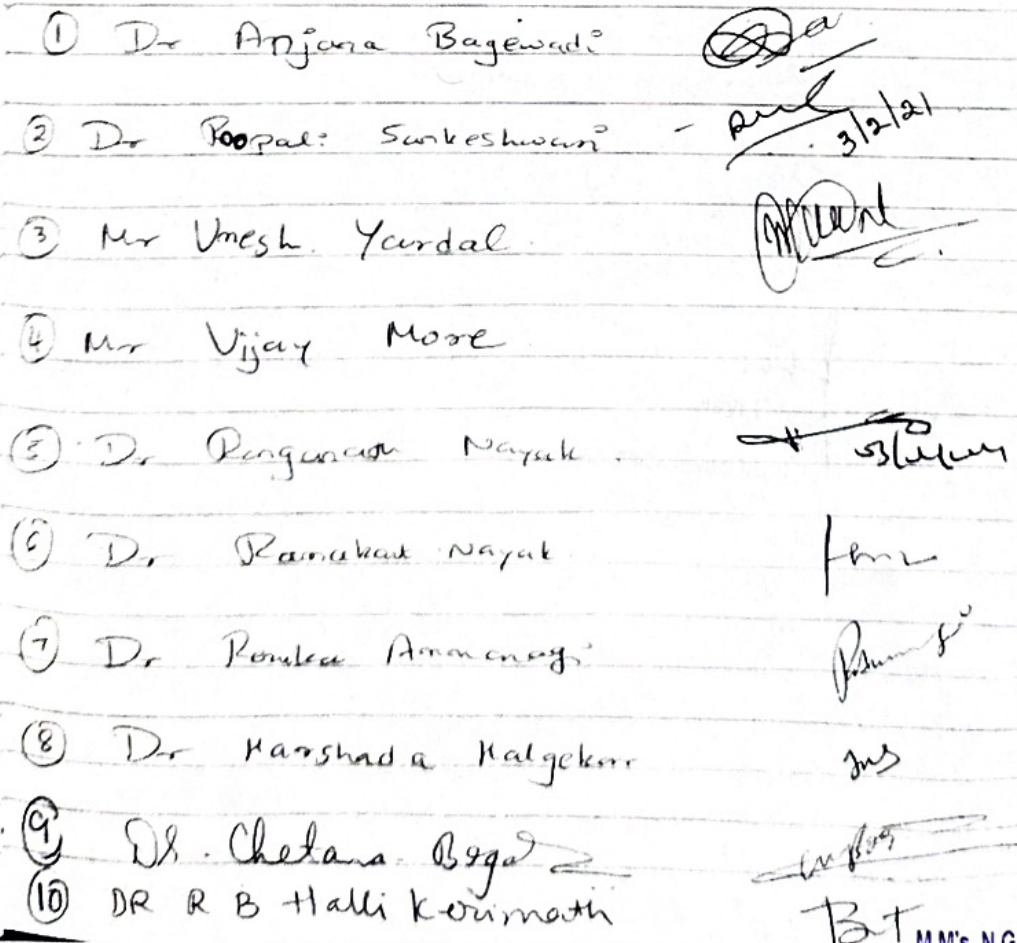 ① Dr Anjana Bagewadi
② Dr Roopali Sankeshwari - 3/2/21
③ Mr Umesh Yardal
④ Mr Vijay More
⑤ Dr Ranganath Nayak
⑥ Dr Ramakant Nayak
⑦ Dr Renuka Ammanagi
⑧ Dr Harshada Halgekar
⑨ Dr. Chetana Bogar
⑩ DR R B Halli Kerimath
M.M's. N.G